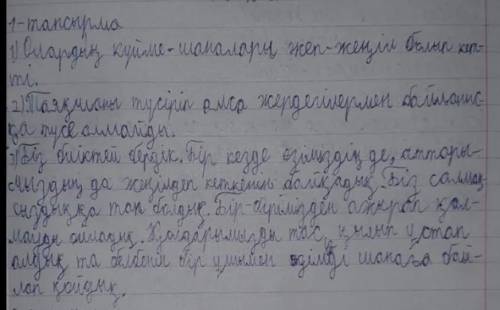 1-тапсырма
1) Олардың күйме-шаналары жеп-жеңіл болып кет-
ті.
2) Таяқшаны түсіріп алса жердегілермен байланыс-
қа түсе алмайды.
3) Біз биіктей бердік. Бір кезде өзіміздің де, аттары-
мыздың да жеңілдеп кеткенін байқадық. Біз салмақ-
сыздыққа тап болдық. Бір-бірімізден ажырап қал-
мауды ойладық. Қолдарымызды тас қылып ұстап
алдық та белбеудің бір ұшымен өзімізді шанаға бай-
лап қойдық.